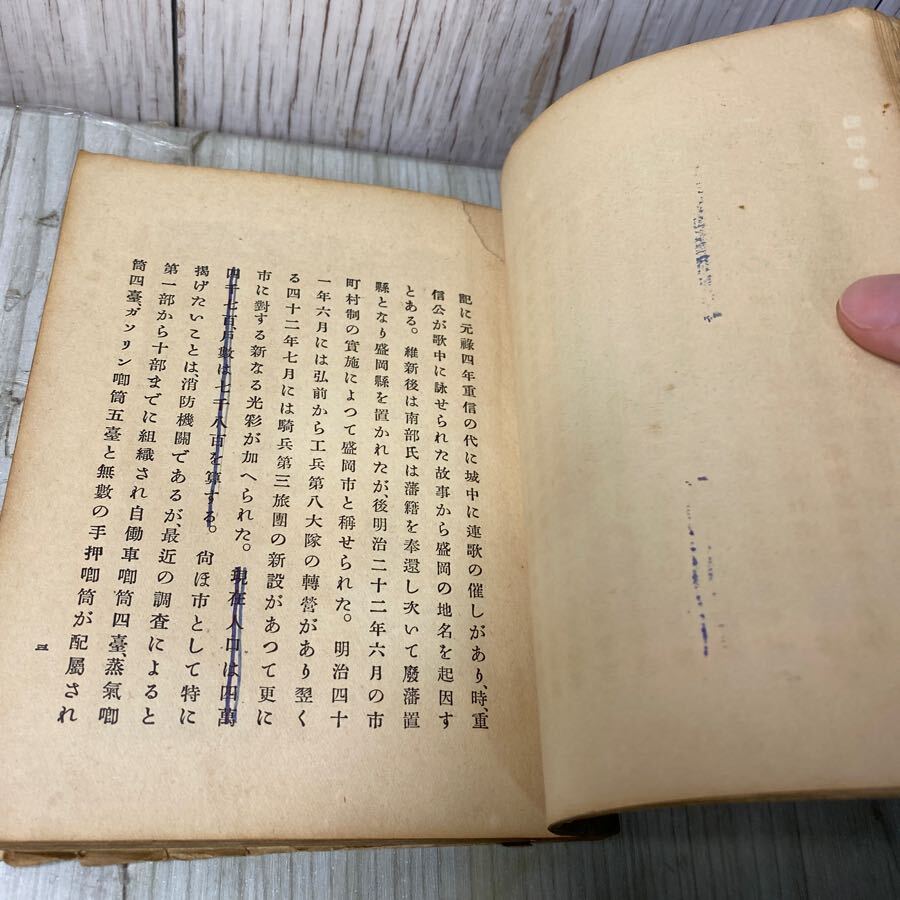 記に元祿四年重信の代に城中に連歌の催しがあり、時、重
信公が歌中に詠せられた故事から盛岡の地名を起因す
とある。維新後は南部氏は藩籍を奉還し次いで廢藩置
縣となり盛岡縣を置かれたが、後明治二十二年六月の市
町村制の實施によつて盛岡市と稱せられた。明治四十
一年六月には弘前から工兵第八大隊の轉營があり翌く
る四十二年七月には騎兵第三旅團の新設があつて更に
市に對する新なる光彩が加へられた。現在人口は四萬
四千七百、戶數は七千八百を算する。尙ほ市として特に
揭げたいことは消防機關であるが、最近の調査によると
第一部から十部までに組織され自働車喞筒四臺、蒸氣喞
筒四臺、ガソリン喞筒五臺と無數の手押喞筒が配屬され
三